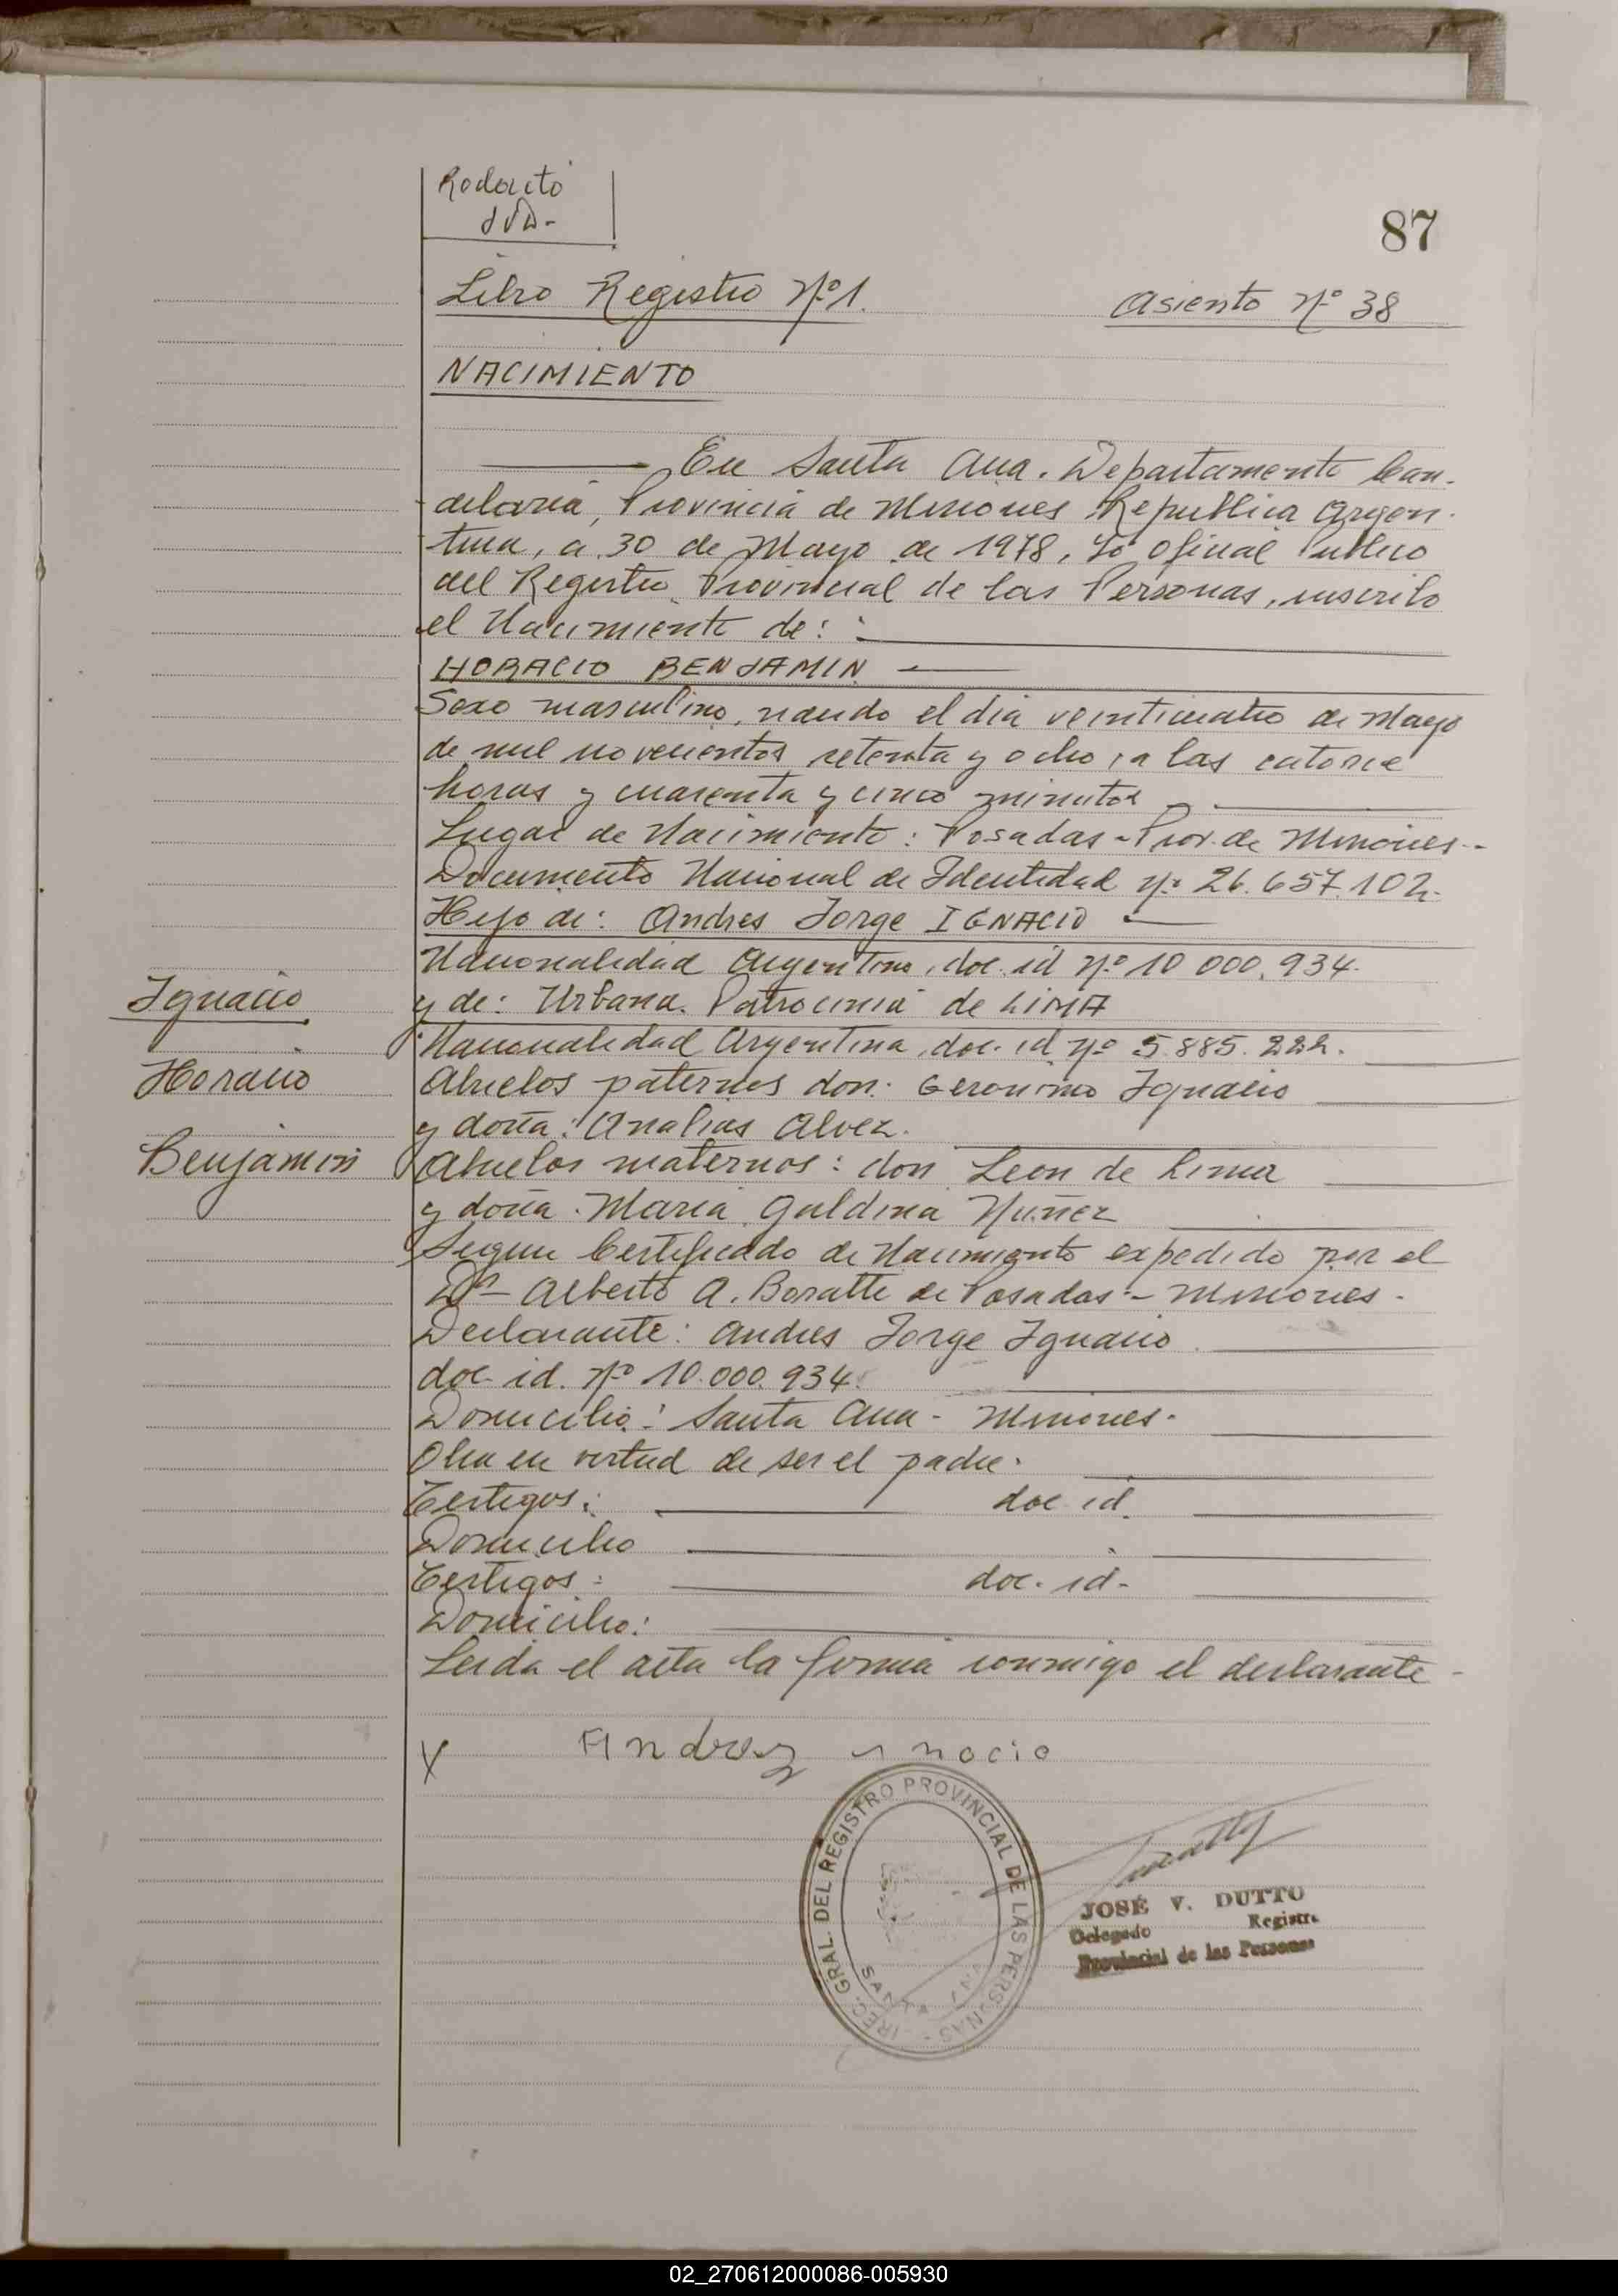 Redactó
JVD-
87
Libro Registro Nº 1.
Asiento Nº 38
NACIMIENTO
En Santa Ana. Departamento Can-
delaria, Provincia de Misiones Republica Argen-
tina, a 30 de Mayo de 1978, Yo Oficial Publico
del Registro Provincial de las Personas, inscribo
el Nacimiento de:
HORACIO BENJAMIN
Sexo masculino, nacido el dia veinticuatro de Mayo
de mil novecientos setenta y ocho, a las catorce
horas y cuarenta y cinco minutos
Lugar de Nacimiento: Posadas - Prov. de Misiones.-
Documento Nacional de Identidad Nº 26.657.102.
Hijo de: Andres Jorge IGNACIO
Nacionalidad Argentino, doc. id Nº 10 000.934.
Ignacio
y de: Urbana Patrocinia de LIMA
Nacionalidad Argentina, doc. id Nº 5.885.222.
Horacio
Abuelos paternos don: Geronimo Ignacio
y doña: Analias Alvez.
Benjamin
Abuelos maternos: don Leon de Lima
y doña. Maria Galdina Nuñez
Segun Certificado de Nacimiento expedido por el
Dr- Alberto A. Boratti de Posadas - Misiones.
Declarante: Andres Jorge Ignacio
doc. id. Nº 10.000.934.
Domicilio: Santa Ana - Misiones.
Obra en virtud de ser el padre.
Testigos: doc. id.
Domicilio
Testigos: doc. id-
Domicilio:
Leida el acta la firma conmigo el declarante-
X Andrez
DIREC. GRAL. DEL REGISTRO PROVINCIAL DE LAS PERSONAS -
SANTA ANA
JOSÉ V. DUTTO
Delegado Registro
Provincial de las Personas
02_270612000086-005930